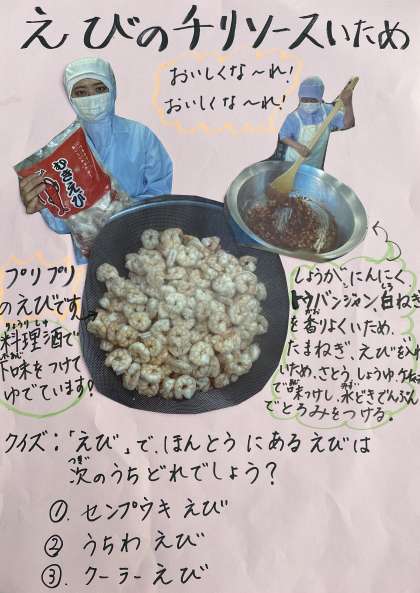 えびのチリソースいため
おいしくな〜れ!
おいしくな〜れ!
むきえび
プリプリ
のえびです。
料理酒で
りょうりしゅ
下味をつけて
ゆでています!
しょうが、にんにく、
トウバンジャン、白ねぎ
を香りよくいため、
たまねぎ、えびを
いため、さとう、しょうゆ、
で味つけし、水どきでんぷん
でとろみをつける。
クイズ:「えび」で、ほんとうにあるえびは
つぎ
次のうちどれでしょう?
①. センプウキ えび
② うちわ えび
③. クーラー えび